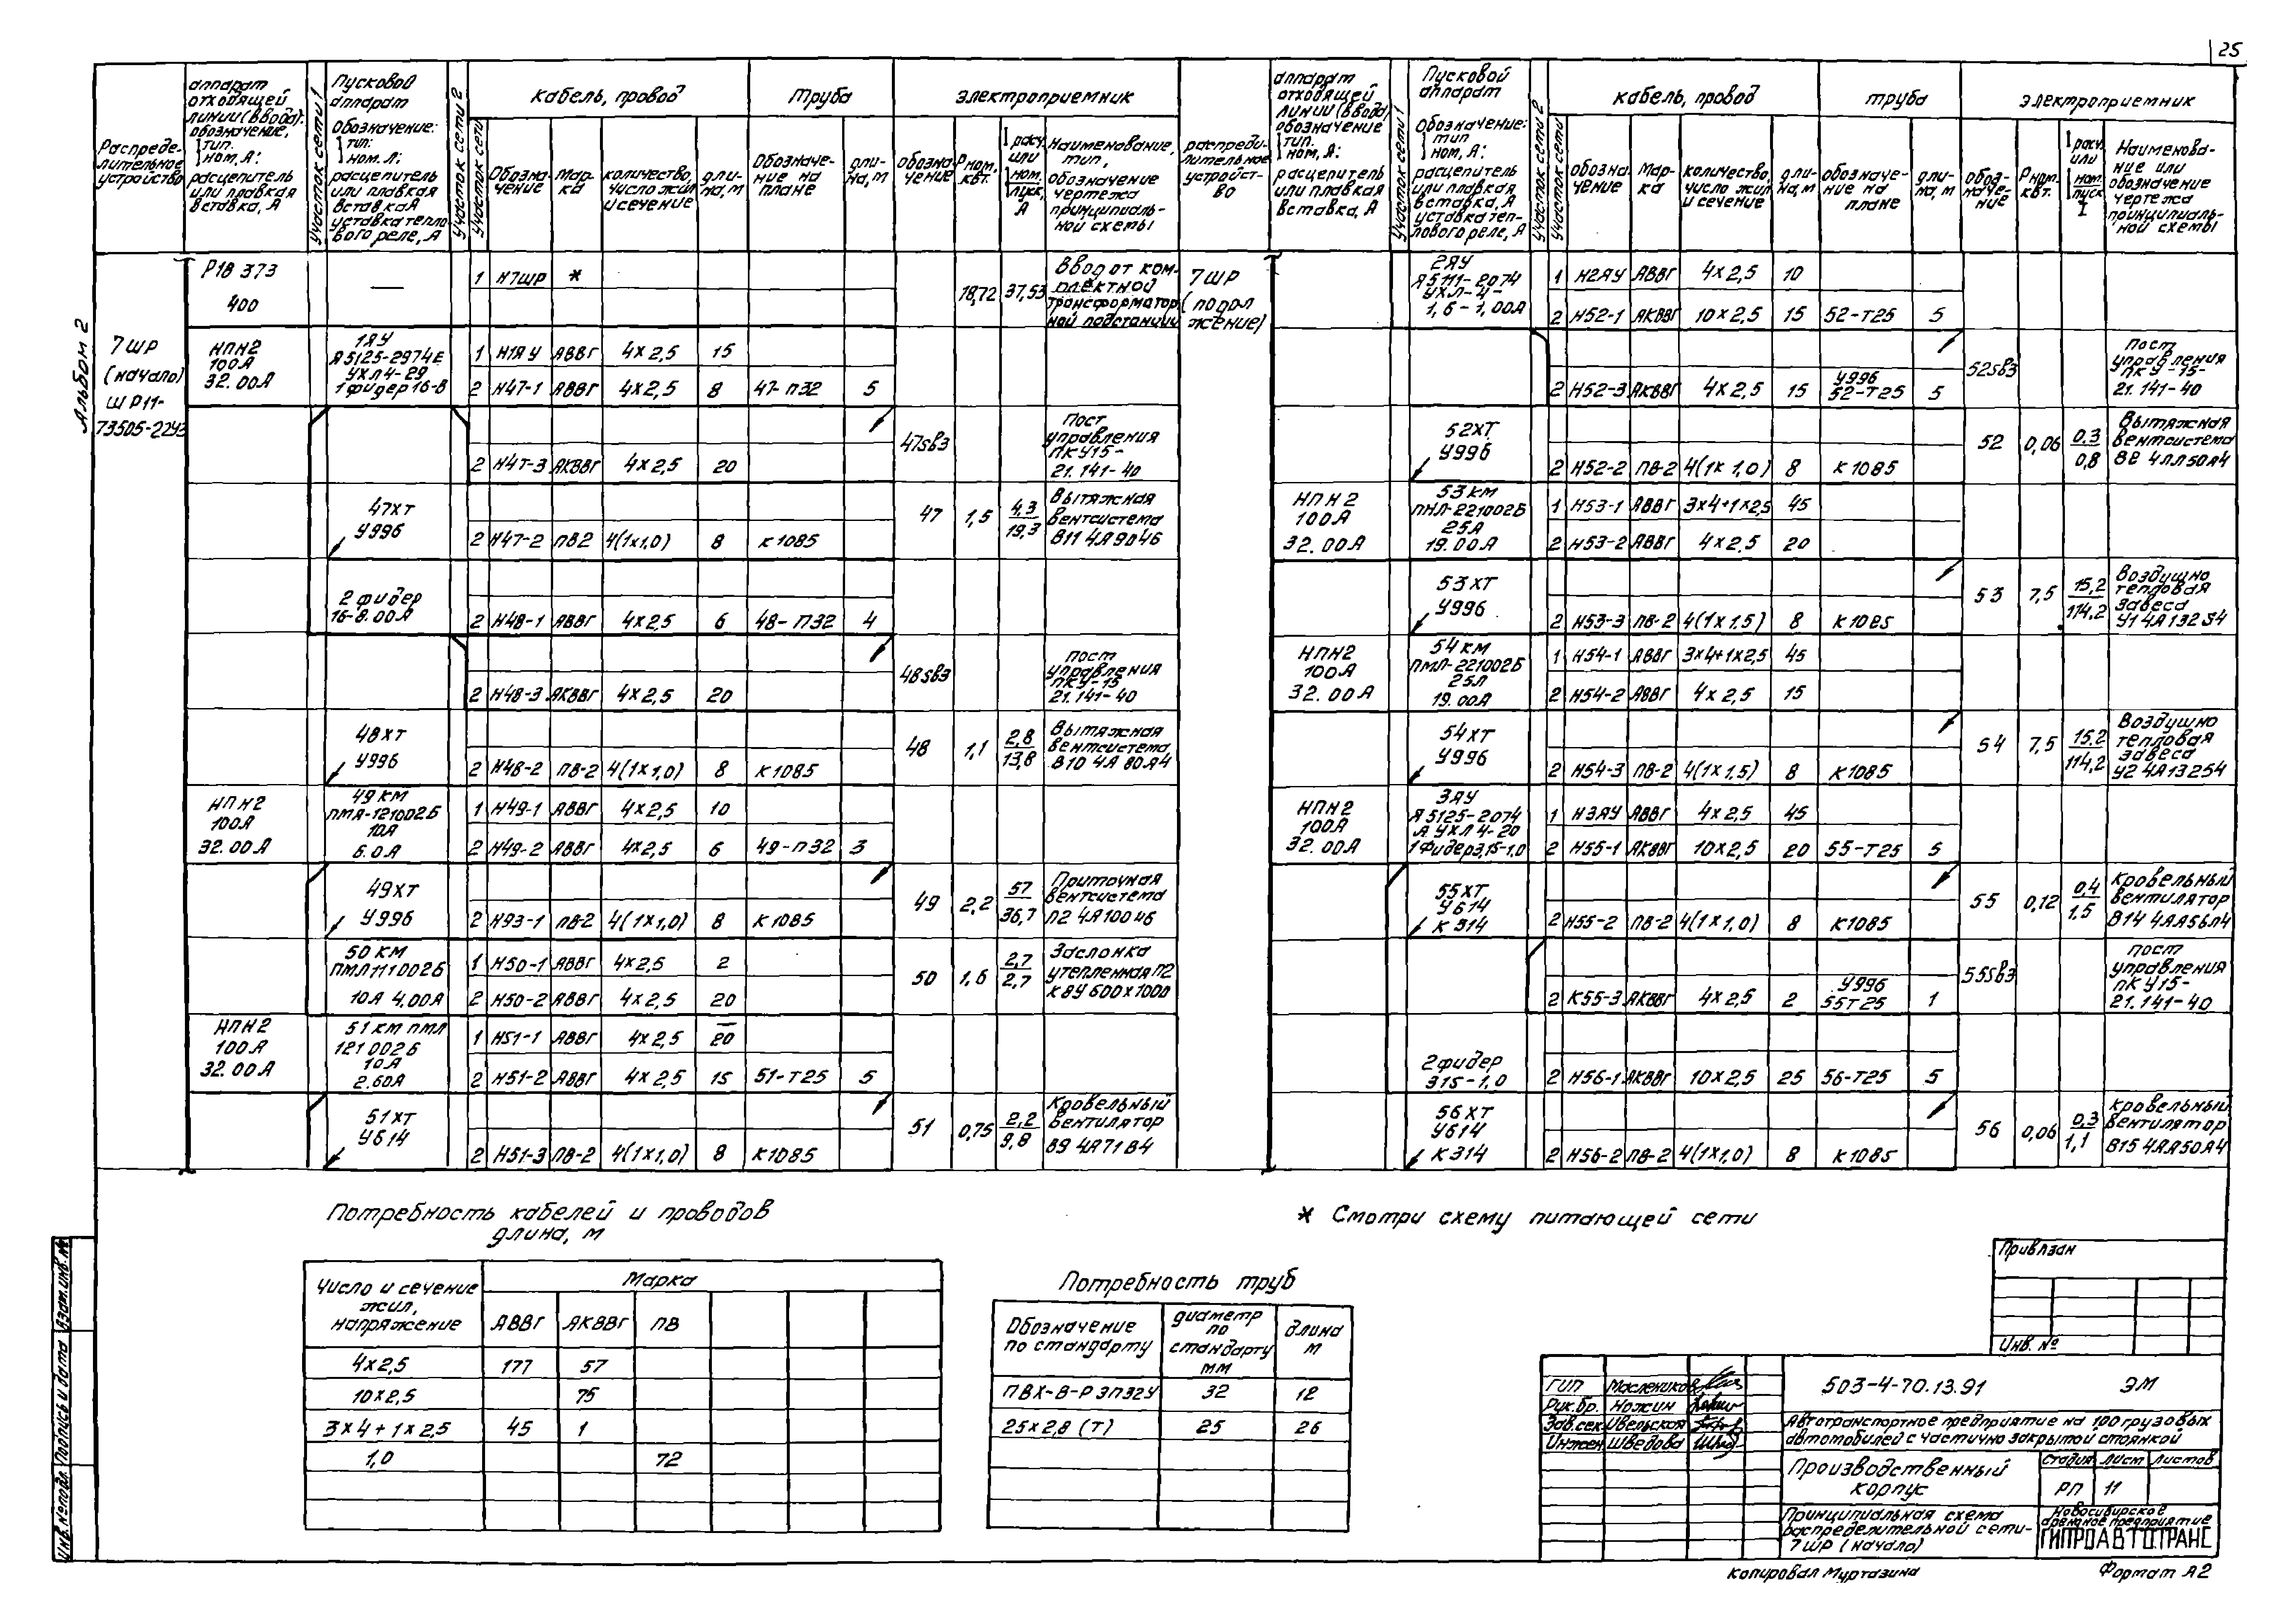 25
Альбом 2
Распреде-
лительное
устройство
аппарат
отходящей
линии (ввода):
обозначение,
тип.
ном, А:
расцепитель
или плавкая
вставка, А
Участок сети 1
Пусковой
аппарат
Обозначение:
тип:
ном. А:
расцепитель
или плавкая
вставка
уставка тепло
вого реле, А
Участок сети 2
кабель, провод
Участок сети
Обозна-
чение
Мар-
ка
количество,
число жил
и сечение
дли-
на, м
труба
Обозначе-
ние на
плане
дли-
на, м
электроприемник
обозна-
чение
Рном,
квт.
Iрасч.
или
ном.
пуск,
А
Наименование,
тип,
обозначение
чертежа
принципиаль-
ной схемы
распреди-
лительное
устройст-
во
аппарат
отходящей
линии (ввода)
обозначение
тип.
ном, А:
расцепитель
или плавкая
вставка, А
Участок сети 1
Пусковой
аппарат
Обозначение:
тип
ном, А:
расцепитель
или плавкая
вставка, А
уставка теп-
лового реле, А
Участок сети 2
кабель, провод
Участок сети
обозна-
чение
Мар-
ка
количество,
число жил
и сечение
дли-
на, м
труба
обозначе-
ние на
плане
дли-
на, м
электроприемник
обоз-
наче-
ние
Рном.
квт.
Iрасч.
или
ном
пуск
I
Наименова-
ние или
обозначение
чертежа
принципиаль-
ной схемы
7ШР
(начало)
ШР11-
73505-22У3
Р18 373
400
—
1 Н7ШР *
18,72 37,53
Ввод от ком-
плектной
трансформатор
ной подстанции
НПН2
100А
32.00А
1ЯУ
Я5125-2974Е
УХЛ4-29
1фидер 16-8
1 Н1ЯУ АВВГ 4х2,5 15
2 Н47-1 АВВГ 4х2,5 8 47-П32 5
2 Н47-3 АКВВГ 4х2,5 20
47SB3
Пост
управления
ПКУ15-
21.141-40
47ХТ
У996
2 Н47-2 ПВ2 4(1х1,0) 8 К1085
47 1,5 4,3
19,3
Вытяжная
вентсистема
В11 4А90У6
2 фидер
16-8.00А
2 Н48-1 АВВГ 4х2,5 6 48-П32 4
2 Н48-3 АКВВГ 4х2,5 20
48SB3
Пост
управления
ПКУ-15
21.141-40
48ХТ
У996
2 Н48-2 ПВ-2 4(1х1,0) 8 К1085
48 1,1 2,8
13,8
Вытяжная
вентсистема
В10 4А 80А4
НПН2
100А
32.00А
49КМ
ПМЛ-121002Б
10А
6.0А
1 Н49-1 АВВГ 4х2,5 10
2 Н49-2 АВВГ 4х2,5 6 49-П32 3
49ХТ
У996
2 Н93-1 ПВ-2 4(1х1,0) 8 К1085
49 2,2 57
36,7
Приточная
вентсистема
П2 4А100У6
50 КМ
ПМЛ111002Б
10А 4.00А
1 Н50-1 АВВГ 4х2,5 2
2 Н50-2 АВВГ 4х2,5 20
50 1,6 2,7
2,7
Заслонка
утепленная П2
КВУ 600х1000
НПН2
100А
32.00А
51КМ ПМЛ
121002Б
10А
2.60А
1 Н51-1 АВВГ 4х2,5 20
2 Н51-2 АВВГ 4х2,5 15 51-Т25 5
51ХТ
У614
2 Н51-3 ПВ-2 4(1х1,0) 8 К1085
51 0,75 2,2
9,8
Кровельный
вентилятор
В9 4А71В4
7ШР
(продол
жение)
2ЯУ
Я5111-2074
УХЛ-4-
1,6-1,00А
1 Н2ЯУ АВВГ 4х2,5 10
2 Н52-1 АКВВГ 10х2,5 15 52-Т25 5
2 Н52-3 АКВВГ 4х2,5 15 У996
52-Т25 5
52SB3
Пост
управления
ПКУ-15-
21.141-40
52ХТ
У996
2 Н52-2 ПВ-2 4(1х1,0) 8 К1085
52 0,06 0,3
0,8
Вытяжная
вентсистема
В8 4АА50А4
НПН2
100А
32.00А
53КМ
ПМЛ-221002Б
25А
19.00А
1 Н53-1 АВВГ 3х4+1х2,5 45
2 Н53-2 АВВГ 4х2,5 20
53ХТ
У996
2 Н53-3 ПВ-2 4(1х1,5) 8 К1085
53 7,5 15,2
114,2
Воздушно
тепловая
завеса
У1 4А132S4
НПН2
100А
32.00А
54КМ
ПМЛ-221002Б
25А
19.00А
1 Н54-1 АВВГ 3х4+1х2,5 45
2 Н54-2 АВВГ 4х2,5 15
54ХТ
У996
2 Н54-3 ПВ-2 4(1х1,5) 8 К1085
54 7,5 15,2
114,2
Воздушно
тепловая
завеса
У2 4А132S4
НПН2
100А
32.00А
3ЯУ
Я5125-2074
А УХЛ4-20
1фидер3,15-1,0
1 Н3ЯУ АВВГ 4х2,5 45
2 Н55-1 АКВВГ 10х2,5 20 55-Т25 5
55ХТ
У614
К314
2 Н55-2 ПВ-2 4(1х1,0) 8 К1085
55 0,12 0,4
1,5
Кровельный
вентилятор
В14 4АА56А4
2 К55-3 АКВВГ 4х2,5 2 У996
55Т25 1
55SB3
Пост
управления
ПКУ15-
21.141-40
2фидер
315-1,0
2 Н56-1 АКВВГ 10х2,5 25 56-Т25 5
56ХТ
У614
К314
2 Н56-2 ПВ-2 4(1х1,0) 8 К1085
56 0,06 0,3
1,1
Кровельный
вентилятор
В15 4АА50А4
Потребность кабелей и проводов
длина, м
Число и сечение
жил,
напряжение
Марка
АВВГ АКВВГ ПВ
4х2,5 177 57
10х2,5 75
3х4+1х2,5 45 1
1,0 72
Потребность труб
Обозначение
по стандарту
диаметр
по
стандарту
мм
длина
м
ПВХ-В-РЭП32У 32 12
25х2,8 (Т) 25 26
* Смотри схему питающей сети
Привязан
Инв. №
Взам.инв.№
Подпись и дата
Инв.№подл.
ГИП Маслеников
Рук.бр. Ножин
Зав.сек. Ивельская
Инжен Шведова
503-4-70.13.91 ЭМ
Автотранспортное предприятие на 100 грузовых
автомобилей с частично закрытой стоянкой
Производственный
корпус
Стадия Лист Листов
РП 11
Принципиальная схема
распределительной сети-
7ШР (начало)
Новосибирское
арендное предприятие
ГИПРОАВТОТРАНС
Копировал Муртазина
Формат А2